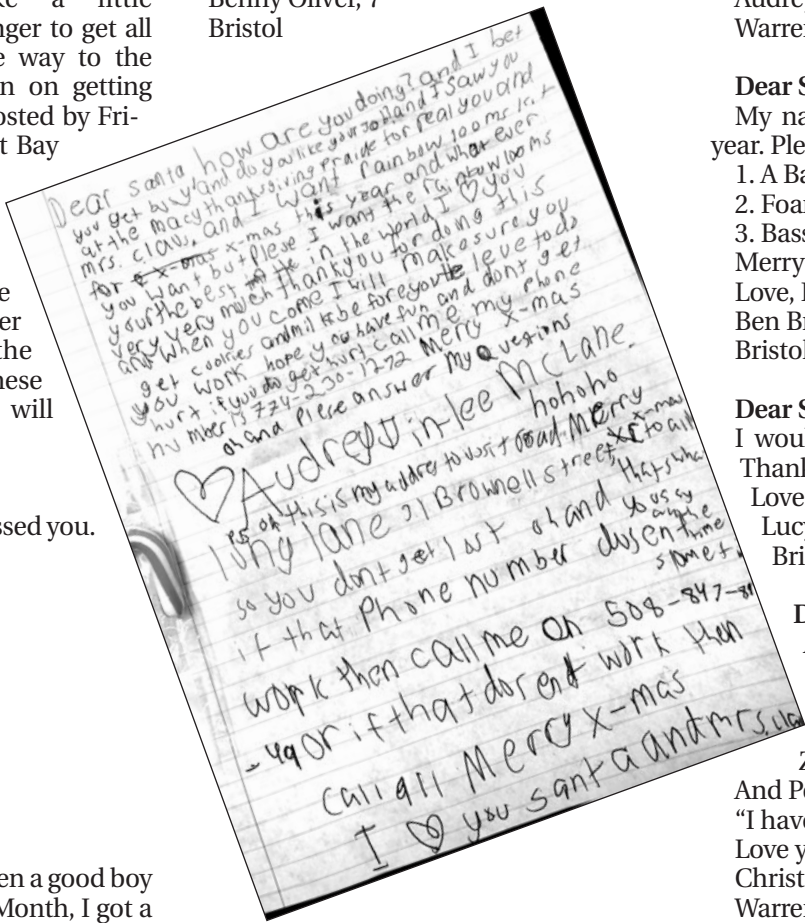 ke a little
nger to get all
e way to the
n on getting
osted by Fri-
t Bay
e
er
the
hese
will
ssed you.
en a good boy
Month, I got a
Benny Oliver, 7
Bristol
Dear santa how are you doing? and I bet
you get busy and do you like your job and I saw you
at the macy thanksgiving praide for real you and
mrs. claus. and I want rainbow looms
for x-mas this year and what ever
you want but plese I want the rainbow looms
your the best in the world I ♡ you
very very much thank you for doing this
and when you come I will make sure you
get cookies and milk before you leve to do
you work hope you have fun and dont get
hurt if you do get hurt call me my phone
number is 774-230-1272 Merry x-mas
oh and plese answer my Questions
♡ Audrey Jin-lee McLane.
hohoho
ps oh this is my addres to visit road Merry x-mas to all
long lane 71 Brownell street,
so you dont get lost oh and thats what
if that phone number dosent
work then call me on 508-847-
or if that dosent work then
call all Merry x-mas
I ♡ you santa and mrs. claus
Audrey
Warren
Dear S
My na
year. Plea
1. A Ba
2. Foam
3. Bass
Merry
Love, B
Ben Br
Bristol
Dear S
I woul
Thank
Love
Lucy
Bri
D
Z
And Pe
“I have
Love y
Christ
Warren